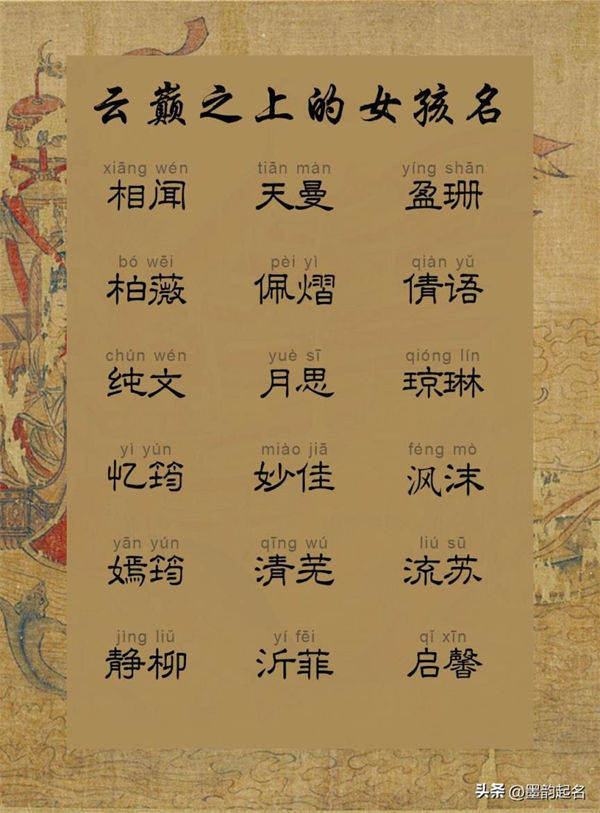 云巅之上的女孩名
xiāng wén tiān màn yíng shān
相闻 天曼 盈珊
bó wēi pèi yì qiàn yǔ
柏薇 佩熠 倩语
chún wén yuè sī qióng lín
纯文 月思 琼琳
yì yún miào jiā féng mò
忆筠 妙佳 沨沫
yān yún qīng wú liú sū
嫣筠 清芜 流苏
jìng liǔ yí fēi qǐ xīn
静柳 沂菲 启馨
头条 @墨韵起名